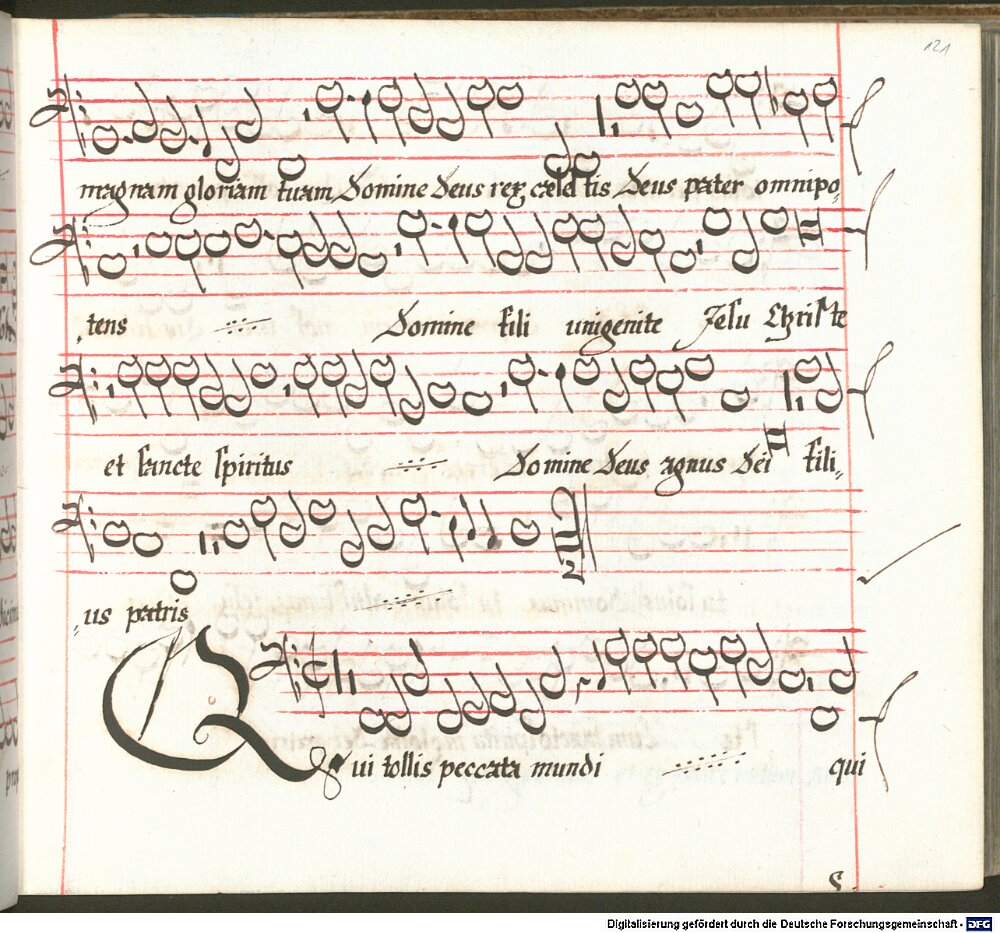 121
magnam gloriam tuam Domine Deus rex cælestis Deus pater omnipo,,
,,tens Domine fili unigenite Jesu Christe
et sancte spiritus Domine Deus agnus Dei fili,,
,,us patris
Qui tollis peccata mundi qui
S.
Digitalisierung gefördert durch die Deutsche Forschungsgemeinschaft - DFG